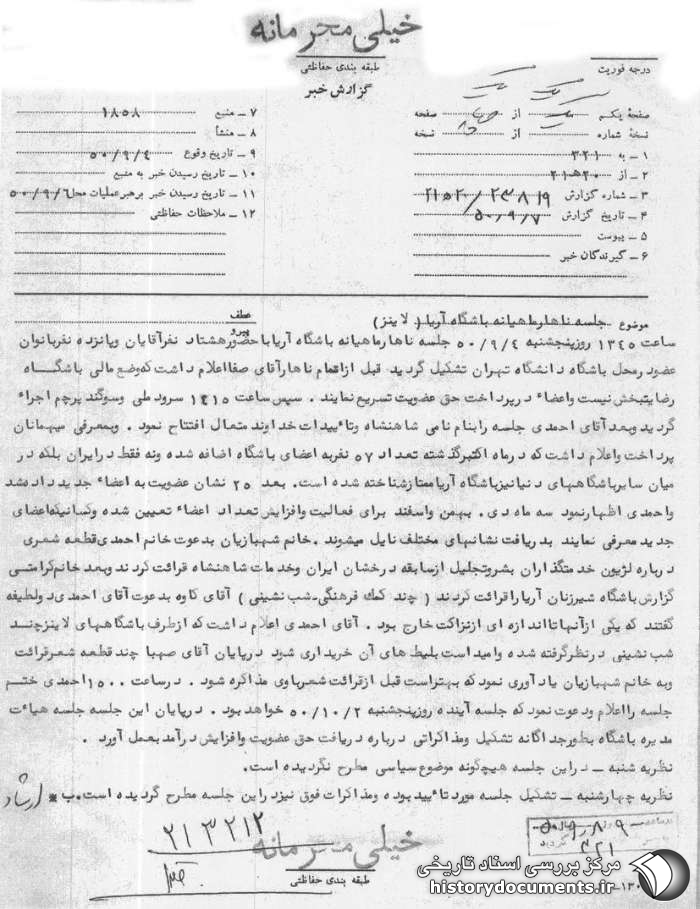 خیلی محرمانه
طبقه بندی حفاظتی
گزارش خبر
درجه فوریت
صفحهٔ یکم از صفحه
نسخهٔ شماره از نسخه
۱ – به ۳۲۱
۲ – از ۲۰ ه‍ ۲۱
۳ – شماره گزارش
۴ – تاریخ گزارش ۵۰/۹/۷
۵ – پیوست
۶ – گیرندگان خبر
۷ – منبع ۱۸۵۸
۸ – منشأ
۹ – تاریخ وقوع ۵۰/۹/۴
۱۰ – تاریخ رسیدن خبر به منبع
۱۱ – تاریخ رسیدن خبر برهبر عملیات محل ۵۰/۹/۶
۱۲ – ملاحظات حفاظتی
موضوع – جلسه ناهارماهیانه باشگاه آریا ( لاینز )
عطف
پیرو
ساعت ۱۳۴۵ روزپنجشنبه ۵۰/۹/۴ جلسه ناهارماهیانه باشگاه آریا با حضورهشتاد نفرآقایان وپانزده نفربانوان
عضو درمحل باشگاه دانشگاه تهران تشکیل گردید قبل ازاتمام ناهارآقای صفااعلام داشت که وضع مالی باشگاه
رضایتبخش نیست واعضاء درپرداخت حق عضویت تسریع نمایند . سپس ساعت ۱۴۱۵ سرود ملی وسوگند پرچم اجراء
گردید وبعدآقای احمدی جلسه رابنام نامی شاهنشاه وتاییدات خداوند متعال افتتاح نمود . وبمعرفی میهمانان
پرداخت واعلام داشت که درماه اکتبرگذشته تعداد ۵۷ نفربه اعضای باشگاه اضافه شده ونه فقط درایران بلکه در
میان سایرباشگاههای دنیانیزباشگاه آریا ممتازشناخته شده است. بعد ۲۵ نشان عضویت به اعضاء جدید داده شد
واحمدی اظهارنمود سه ماه دی . بهمن واسفند برای فعالیت وافزایش تعداد اعضاء تعیین شده وکسانیکه اعضای
جدید معرفی نمایند بدریافت نشانهای مختلف نایل میشوند .خانم شهبازیان بدعوت خانم احمدی قطعه شعری
درباره لژیون خدمتگذاران بشروتجلیل ازسابقه درخشان ایران وخدمات شاهنشاه قرائت کردند وبعد خانم کرامتی
گزارش باشگاه شیرزنان آریا راقرائت کردند ( چند کمک فرهنگی-شب نشینی ) آقای کاوه بدعوت آقای احمدی دولطیفه
گفتند که یکی ازآنها تااندازه ای ازنزاکت خارج بود . آقای احمدی اعلام داشت که ازطرف باشگاههای لاینزچند
شب نشینی درنظرگرفته شده وامید است بلیط های آن خریداری شود درپایان آقای صهبا چند قطعه شعرقرائت
وبه خانم شهبازیان یادآوری نمود که بهتراست قبل ازقرائت شعرباوی مذاکره شود . درساعت ۱۵۰۰ احمدی ختم
جلسه رااعلام ودعوت نمود که جلسه آینده روزپنجشنبه ۵۰/۱۰/۲ خواهد بود . درپایان این جلسه جلسه هیاءت
مدیره باشگاه بطورجداگانه تشکیل ومذاکراتی درباره دریافت حق عضویت وافزایش درآمد بعمل آورد .
نظریه شنبه – دراین جلسه هیچگونه موضوع سیاسی مطرح نگردیده است.
نظریه چهارشنبه – تشکیل جلسه مورد تاءیید بوده ومذاکرات فوق نیزدراین جلسه مطرح گردیده است.ب * ارشاد
۲۱۳۲۱۲
خیلی محرمانه
طبقه بندی حفاظتی
مرکز بررسی اسناد تاریخی
historydocuments.ir